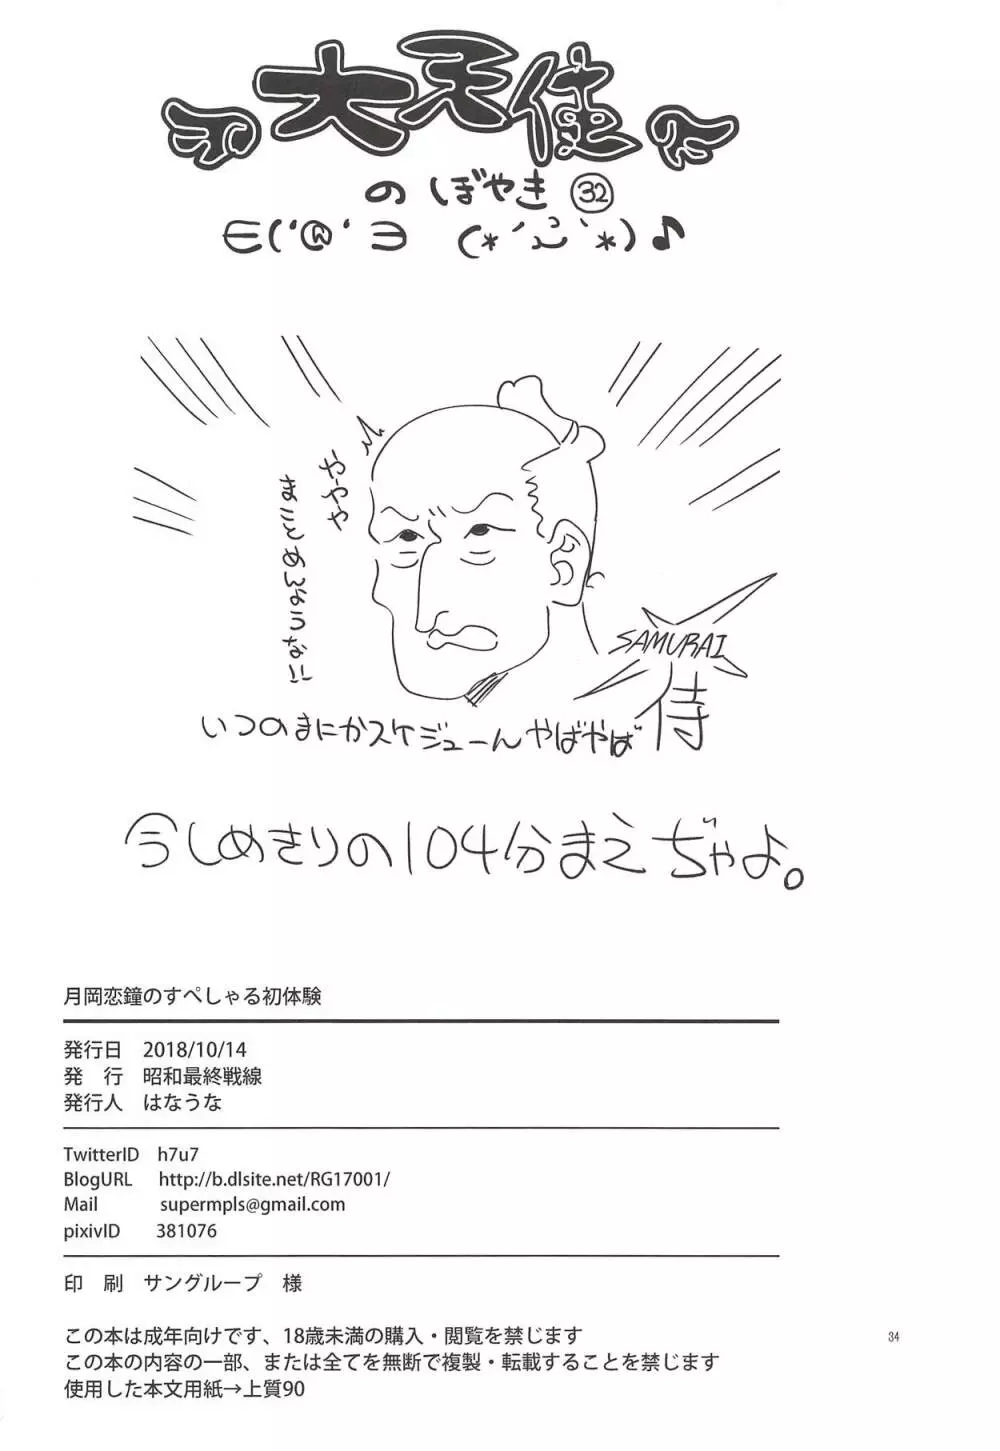 大天使
のぼやき ㉜
∈('@'∋ (*´ω`*)♪
ややや
まことめんような!!
SAMURAI
侍
いつのまにかスケジューんやばやば
今しめきりの104分まえぢゃよ。
月岡恋鐘のすぺしゃる初体験
発行日 2018/10/14
発 行 昭和最終戦線
発行人 はなうな
TwitterID h7u7
BlogURL http://b.dlsite.net/RG17001/
Mail supermpls@gmail.com
pixivID 381076
印 刷 サングループ 様
この本は成年向けです、18歳未満の購入・閲覧を禁じます
この本の内容の一部、または全てを無断で複製・転載することを禁じます
使用した本文用紙→上質90
34